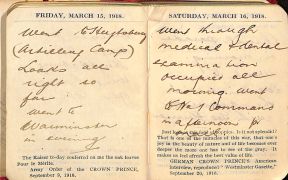 FRIDAY, MARCH 15, 1918.
Went to Heytesbury
(Artillery Camp)
Looks all
right so
far
Went to
Warminster
in evening
The Kaiser to-day conferred on me the oak leaves
Pour le Mérite.
Army Order of the CROWN PRINCE,
September 9, 1918.
SATURDAY, MARCH 16, 1918.
Went through
medical & dental
examination
occupies all
morning. Went
to No 1 Command
in afternoon for
Just Is it not splendid?
That is one of the miracles of this war, that one's
joy in the beauty of nature and of life becomes ever
deeper the more one has to see of the gray. It
makes us feel afresh the best value of life.
GERMAN CROWN PRINCE'S American
Interview, reproduced "Westminster Gazette,"
September 20, 1916.